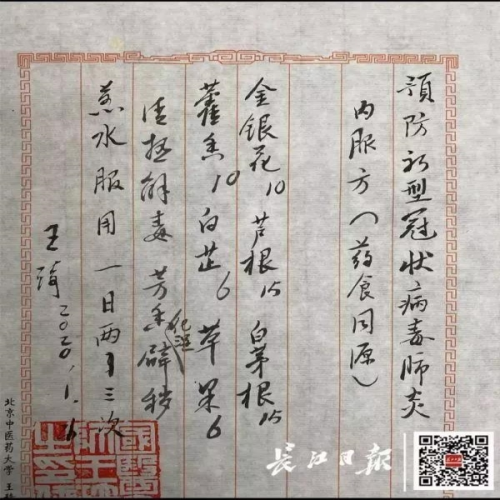 预防新型冠状病毒肺炎
内服方（药食同源）
金银花10 芦根15 白茅根15
藿香10 白芷6 草果6
清热解毒 芳香化湿辟秽
煎水服用 一日两到三次
王琦2020.1.
北京中医药大学 王
长江日报